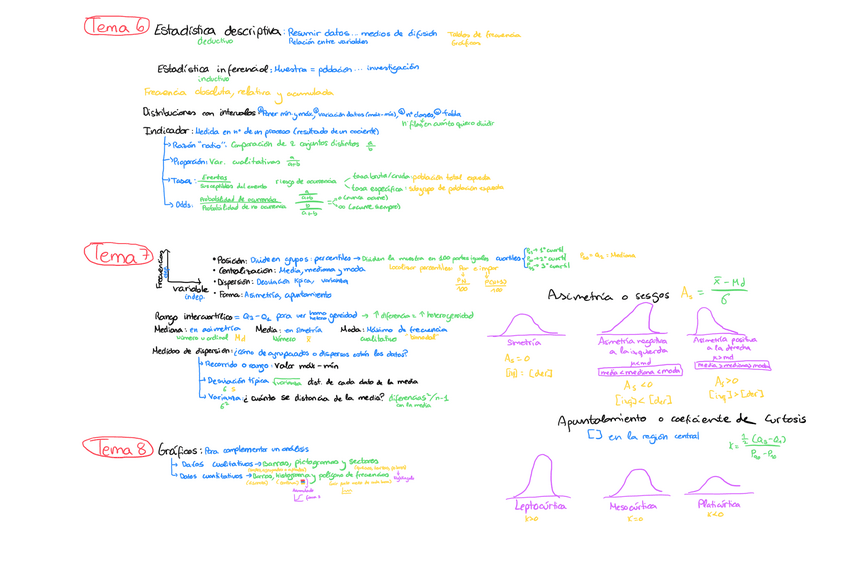 Tema 6
Estadística descriptiva: Resumir datos... medios de difusión
Tablas de frecuencia
deductivo
Relación entre variables
Gráficos
Estadística inferencial: Muestra = población ... investigación
inductivo
Frecuencia absoluta, relativa y acumulada
Distribuciones con intervalos
Indicador: Medida en nº de un proceso (resultado de un cociente)
Razón "ratio": Comparación de 2 conjuntos distintos a/b
Proporción: Var. cualitativas a/a+b
Tasa: Eventos / Susceptibles del evento
riesgo de ocurrencia
tasa bruta/cruda: población total expuesta
tasa específica: subgrupo de población expuesta
Odds: Probabilidad de ocurrencia / Probabilidad de no ocurrencia
0 (nunca ocurre)
∞ (ocurre siempre)
Tema 7
Frecuencia
variable
indep.
• Posición: Divide en grupos: percentiles → Dividen la muestra en 100 partes iguales
cuartiles
P25 → 1º cuartil
P50 → 2º cuartil
P75 → 3º cuartil
P50 = Q2 = Mediana
• Centralización: Media, mediana y moda
Localizar percentiles: par o impar
• Dispersión: Desviación típica, varianza
• Forma: Asimetría, apuntamiento
Rango intercuartílico = Q3 - Q1 para ver homo hetero geneidad → ↑ diferencia = ↑ heterogeneidad
Mediana: en asimetría
Media: en simetría
Moda: Máximo de frecuencia
Número y ordinal Md
Número x̄
cualitativo
Medidas de dispersión: ¿cómo de agrupados o dispersos están los datos?
Recorrido o rango: valor máx - mín
Desviación típica: √varianza dist. de cada dato de la media
Varianza: ¿cuánto se distancia de la media? diferencias²/n-1
con la media
Asimetría o sesgos As = x̄ - Md / σ
Simetría
As = 0
[izq] = [der]
Asimetría negativa
a la izquierda
μ<md
media<mediana<moda
As < 0
[izq] < [der]
Asimetría positiva
a la derecha
μ>md
media>mediana>moda
As > 0
[izq] > [der]
Apuntalamiento o coeficiente de Curtosis
[] en la región central
K = ½ (Q3 - Q1) / P90 - P10
Leptocúrtica
K>0
Mesocúrtica
K=0
Platicúrtica
K<0
Tema 8
Gráficos: Para complementar un análisis
Datos cualitativos → barras, pictogramas y sectores
Datos cuantitativos → Barras, histograma y polígono de frecuencias